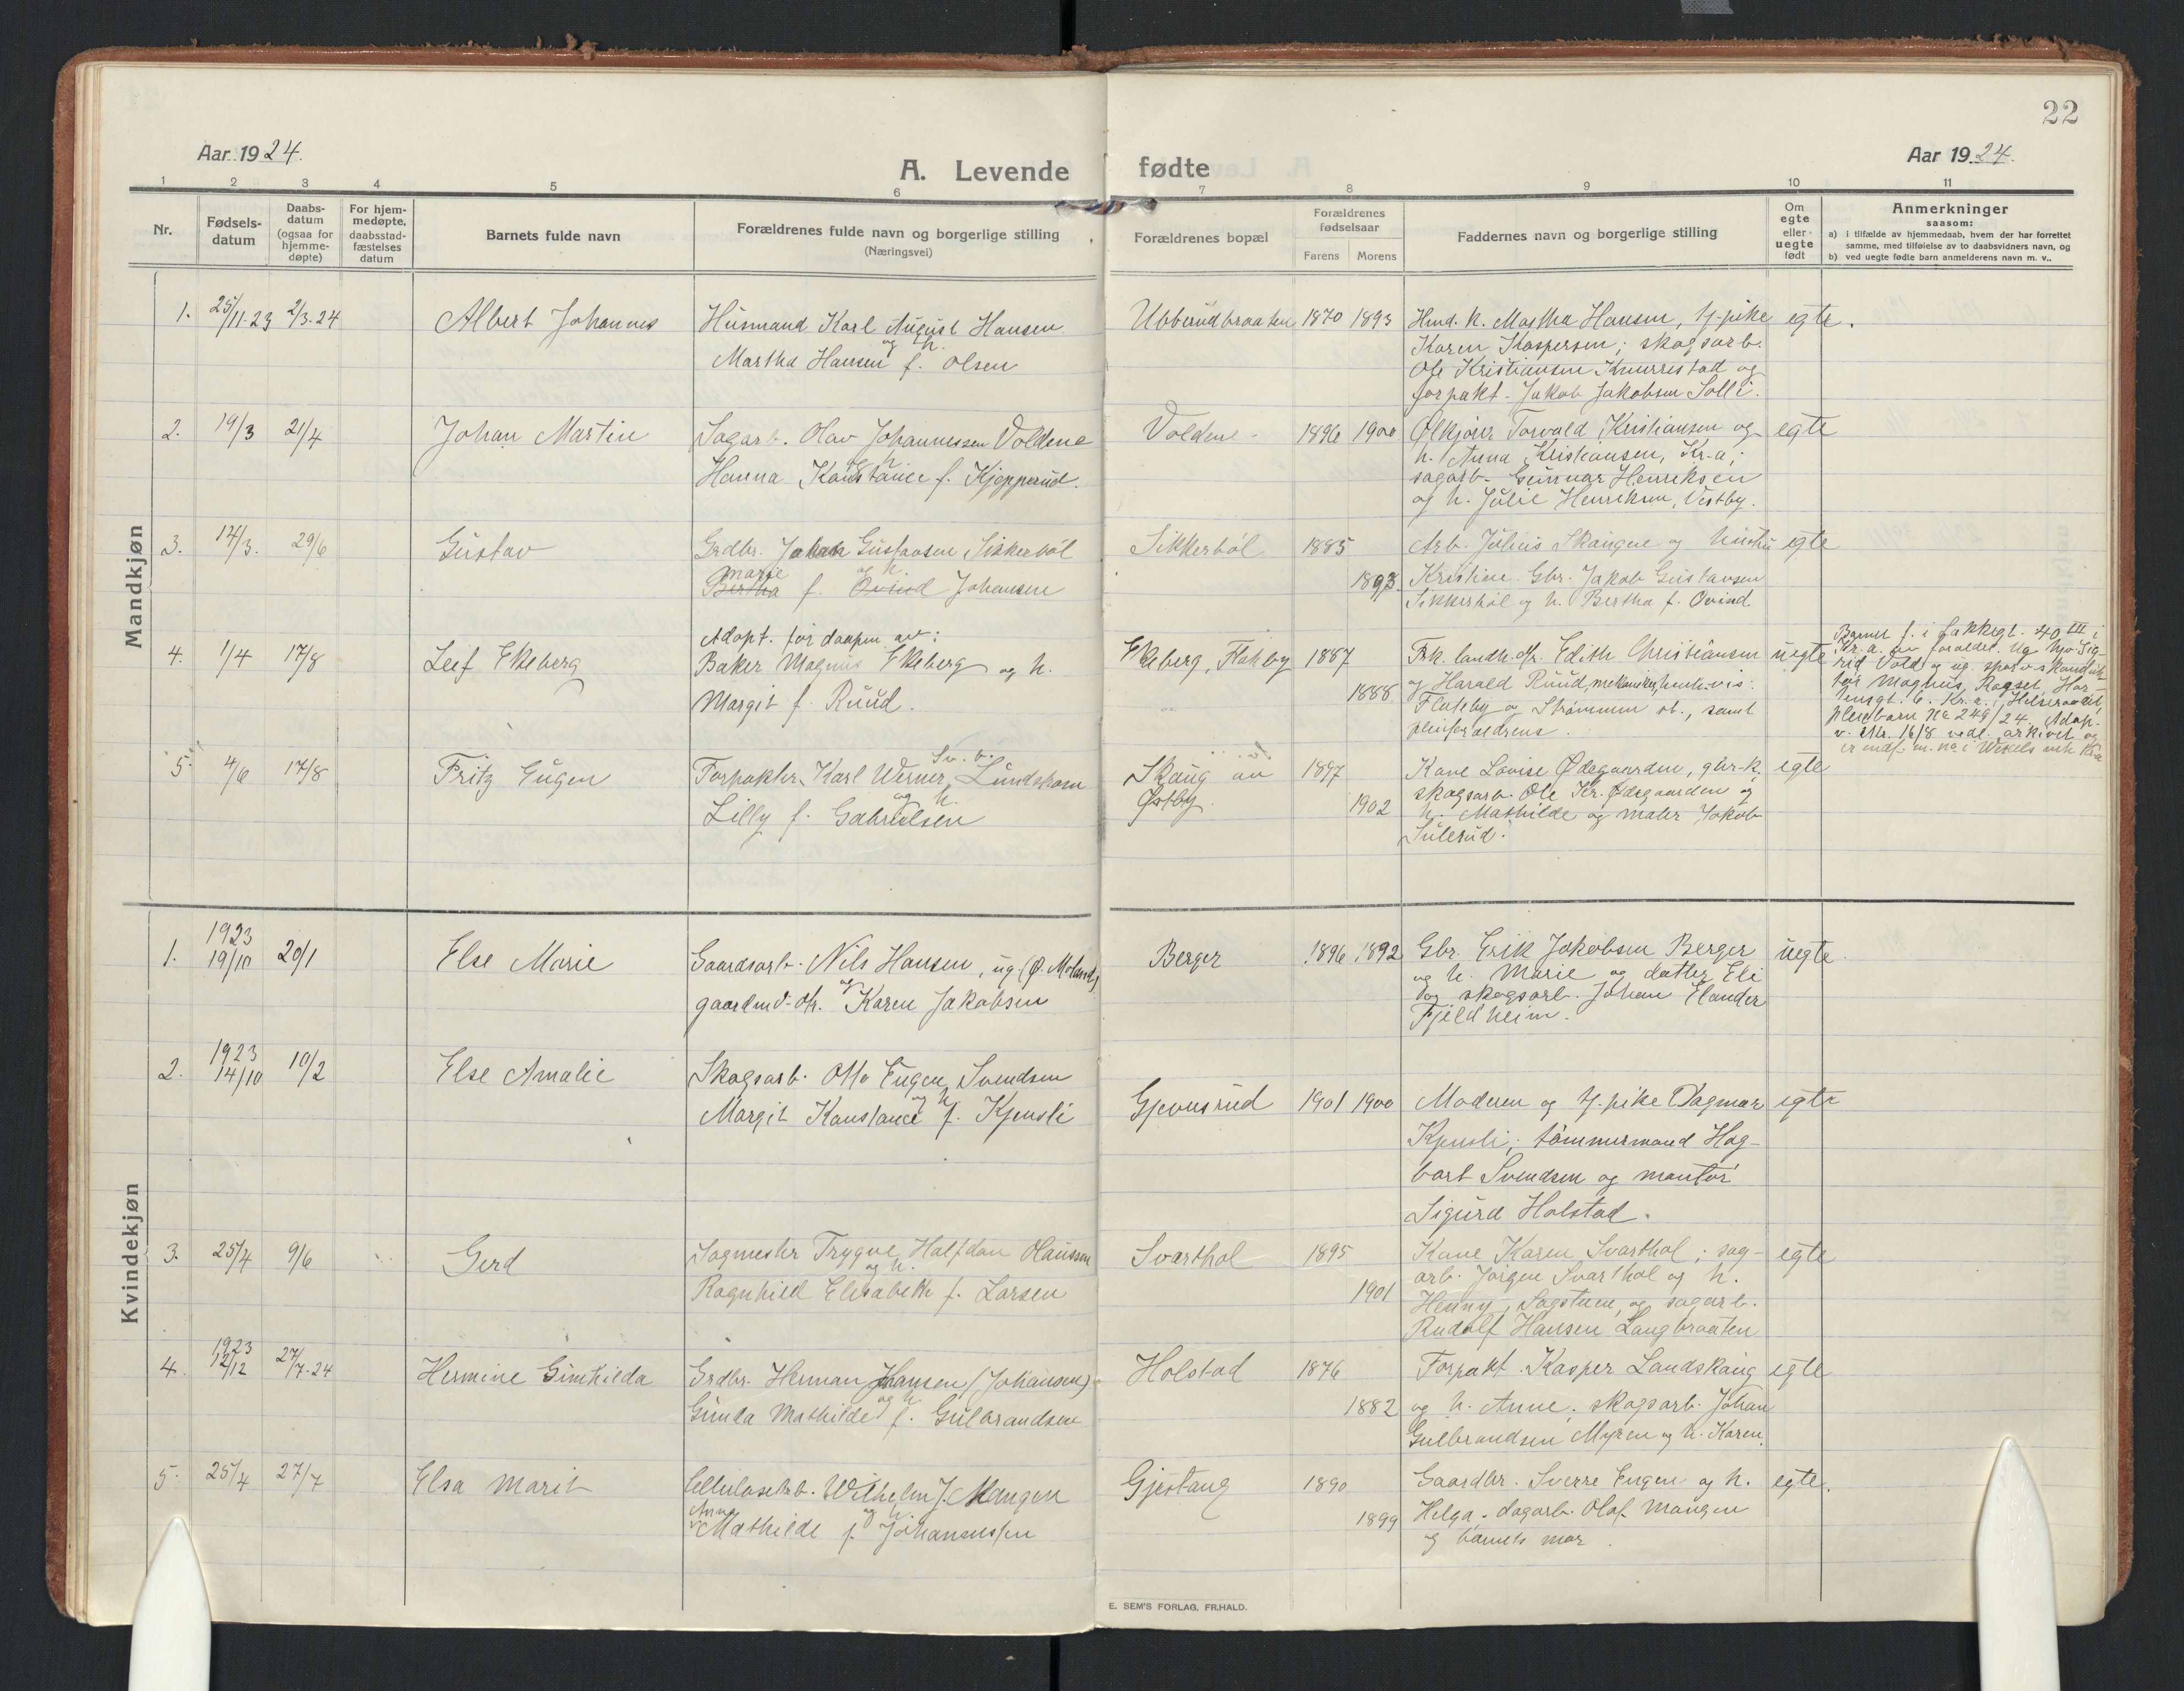 22
Aar 1924.
A. Levende fødte
Aar 1924.
1 2 3 4 5 6 7 8 9 10 11
Nr.
Fødsels-
datum
Daabs-
datum
(ogsaa for
hjemme-
døpte)
For hjem-
medøpte,
daabsstad-
fæstelses
datum
Barnets fulde navn
Forældrenes fulde navn og borgerlige stilling
(Næringsvei)
Forældrenes bopæl
Forældrenes
fødselsaar
Farens Morens
Faddernes navn og borgerlige stilling
Om
egte
eller
uegte
født
Anmerkninger
saasom:
a) i tilfælde av hjemmedaab, hvem der har forrettet
samme, med tilføielse av to daabsvidners navn, og
b) ved uegte fødte barn anmelderens navn m. v..
Mandkjøn
1. 25/11.23 2/3.24 Albert Johannes
Husmand Karl August Hansen
og h.
Martha Hansen f. Olsen
Ubberudbraaten 1870 1893
Hmd. k. Martha Hansen, tj.pike
Karen Kaspersen; skogsarb.
Ole Kristiansen Knurrestad og
forpakt. Jakob Jakobsen Solli.
egte.
2. 19/3 21/4 Johan Martin
Sagarb. Olav Johannessen Voldene
og h.
Hanna Konstance f. Kjepperud.
Voldene. 1896 1900
Ølkjører Torvald Kristiansen og
h. Anna Kristiansen, Kr.a;
sagarb. Gunnar Henriksen
og h. Julie Henriksen, Vestby.
egte
3. 14/3. 29/6 Gustav
Grdbr. Johan Gustavsen Sikkerböl
Marie og h.
Bertha f. Ovind Johansen
Sikkerböl 1885
1893.
Arb. Julius Skaugen og hustru
Kristine. Gbr. Jakob Gustavsen
Sikkerböl og h. Bertha f. Ovind.
egte
4. 1/4 17/8 Leif Ekeberg
Adopt. før daapen av:
Baker Magnus Ekeberg og h.
Margit f. Ruud.
Ekeberg, Flakby 1887
1888.
Frk. landh.dtr. Edith Christiansen
og Harald Ruud
Flakby og Strømmen st., samt
pleieforældrene.
uegte
Barnet f. i Bakkegt. 40 III i
Kr.a. av foreldr. Ug
rid Vold og ug.
Magnus
6. Kr.a. Helseraadet,
pleiebarn No 249/24. Adop.
v. skr. 16/8 vedl. arkivet og
5. 4/6 17/8 Fritz Eugen
Sv. b.
Forpakter Karl Werner Lundskorn
og h.
Lilly f. Gabrielsen
Skaug av
Østby. 1897
1902
Kone Lovise Ødegaarden, gbr-k,
skogsarb. Ole Kr. Ødegaarden og
h. Mathilde og maler Jakob
Sulerud.
egte
Kvindekjøn
1. 1923
19/10 20/1 Else Marie
Gaardsarb. Nils Hansen, ug. (Ø. Moland)
og
gaardmd-dtr. Karen Jakobsen
Berger 1896 1892
Gbr. Erik Jakobsen Berger
og h. Marie og datter Eli
og skogsarb. Johan Elander
Fjeldheim.
uegte.
2. 1923
14/10 10/2 Else Amalie
Skogsarb. Otto Eugen Svendsen
og h.
Margit Konstance f. Kjensli
Gjevusrud 1901 1900
Moderen og tj.pike Dagmar
Kjensli; tömmermand Hag-
bart Svendsen og montör
Sigurd Holstad.
egte
3. 25/4 9/6 Gerd
Sagmester Trygve Halfdan Hanssen
og h.
Ragnhild Elisabeth f. Larsen
Svarthol 1895
1901
Kone Karen Svarthol; sag-
arb. Jörgen Svarthol og h.
Henny, Sagstuen og sagarb.
Rudolf Hansen Langbraaten
egte
4. 1923
12/12 27/7.24 Hermine Gunhilda
Grdbr. Herman Hansen (Johansen)
og h.
Gunda Mathilde f. Gulbrandsen
Holstad 1876
1882
Forpakt. Kasper Landskaug
og h. Anne; skogsarb. Johan
Gulbrandsen Myren og h. Karen.
egte
5. 25/4 27/7 Elsa Marit
Cellulosearb. Wilhelm J. Mangen
Anna og h.
Mathilde f. Johannessen
Gjestang 1890
1899
Gaardbr. Sverre Engen og h.
Helga, dagarb. Olaf Mangen
og barnets mor.
egte.
E. SEM'S FORLAG, FR.HALD.